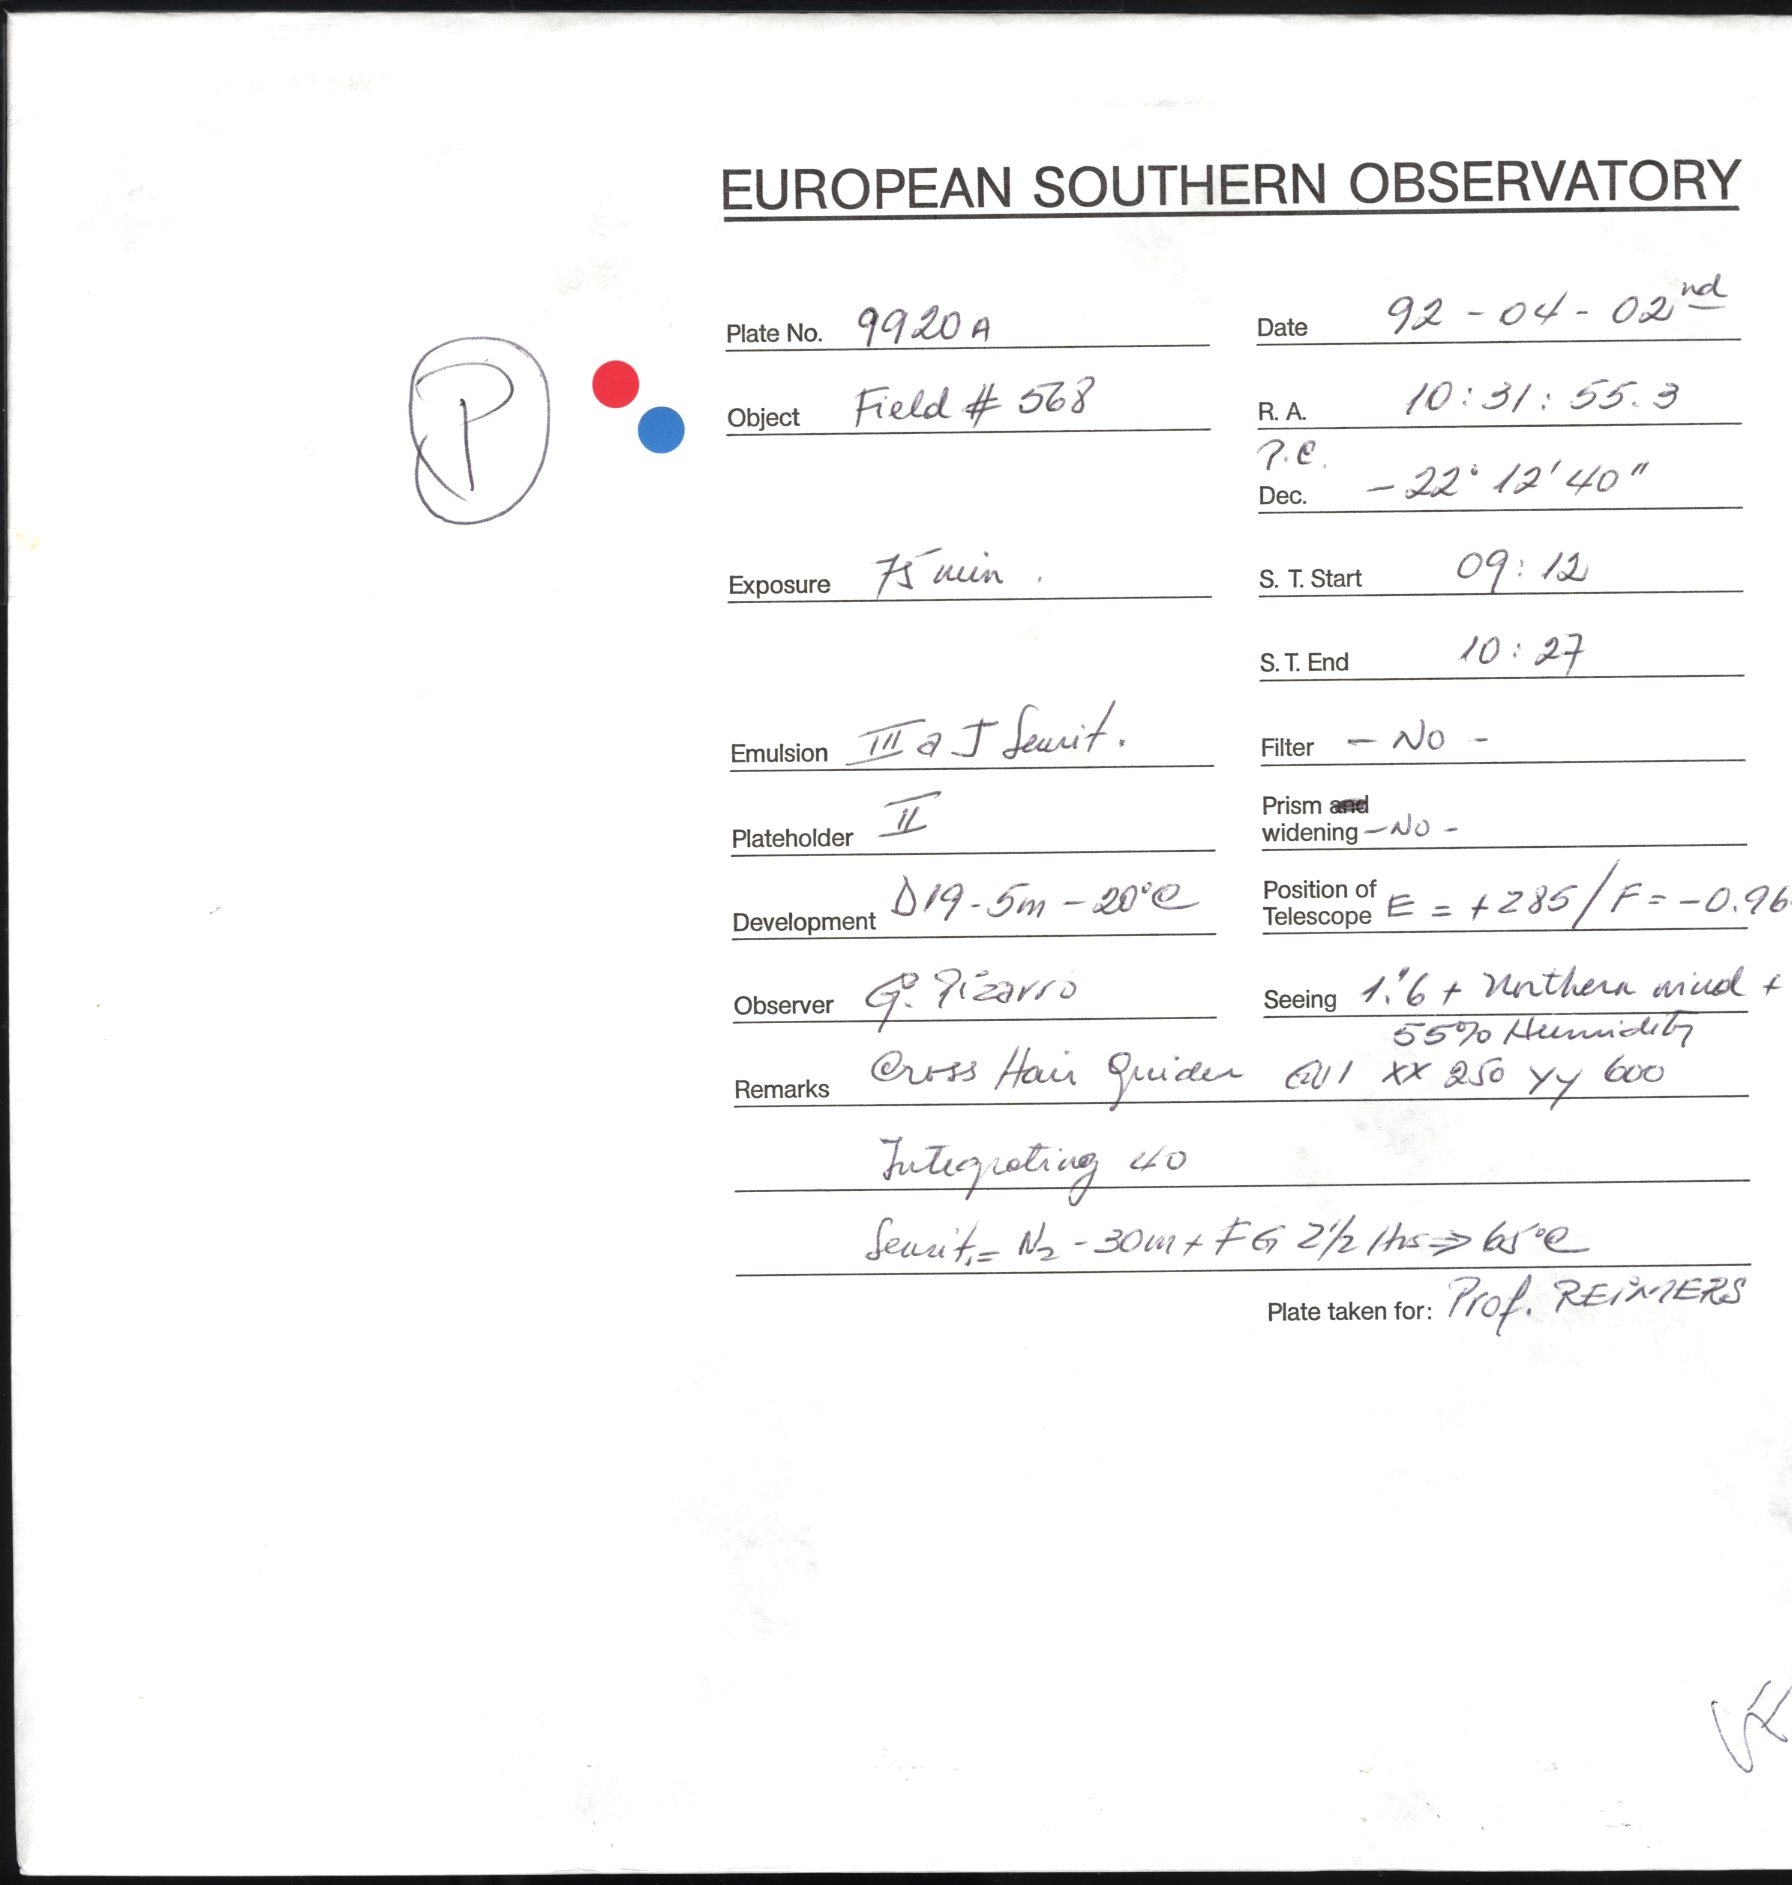 EUROPEAN SOUTHERN OBSERVATORY
Plate No. 9920A Date 92-04-02nd
P
Object Field # 568 R. A. 10:31:55.3
P.C.
Dec. -22° 12' 40"
Exposure 75 min. S. T. Start 09:12
S. T. End 10:27
Emulsion III a J Sensit. Filter - No -
Plateholder II Prism and
widening - No -
Development D19-5m-20°C Position of
Telescope E = +285/F = -0.96
Observer G. Pizarro Seeing 1."6 + Northern wind +
55% Humidity
Remarks Cross Hair Guider XX 250 YY 600
Integrating 40
Sensit. = N2 - 30m + FG 2½ Hrs ⇒ 65°C
Plate taken for: Prof. REIMERS